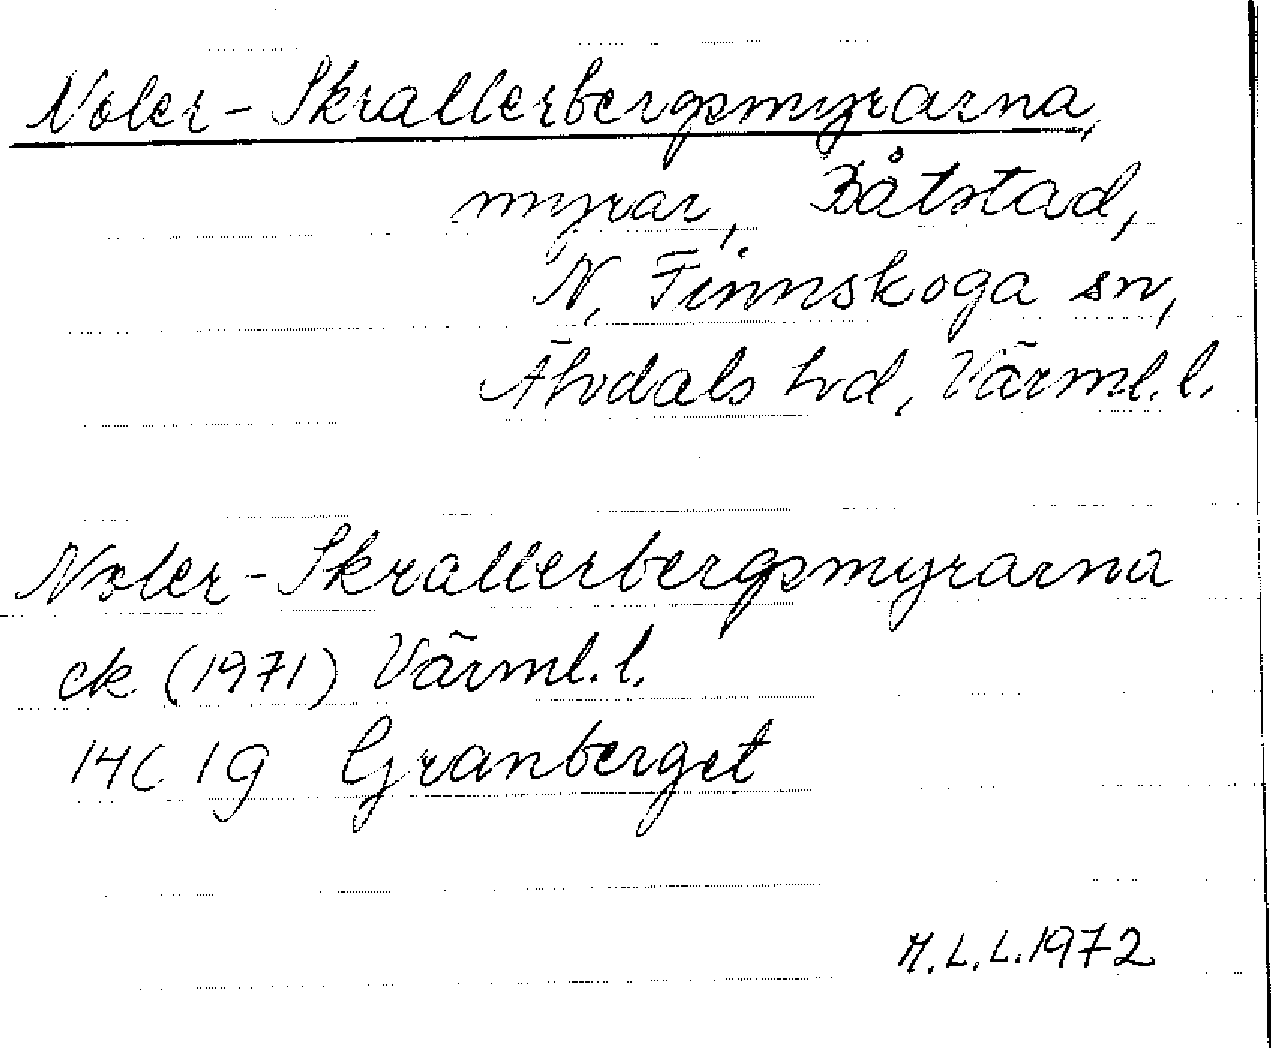 Noler-Skrallerbergsmyrarna,
myrar, Båtstad,
N. Finnskoga sn,
Älvdals hd, Värml.l.
Noler-Skrallerbergsmyrarna
ek (1971) Värml.l.
14C 1g Granberget
M.L.L.1972